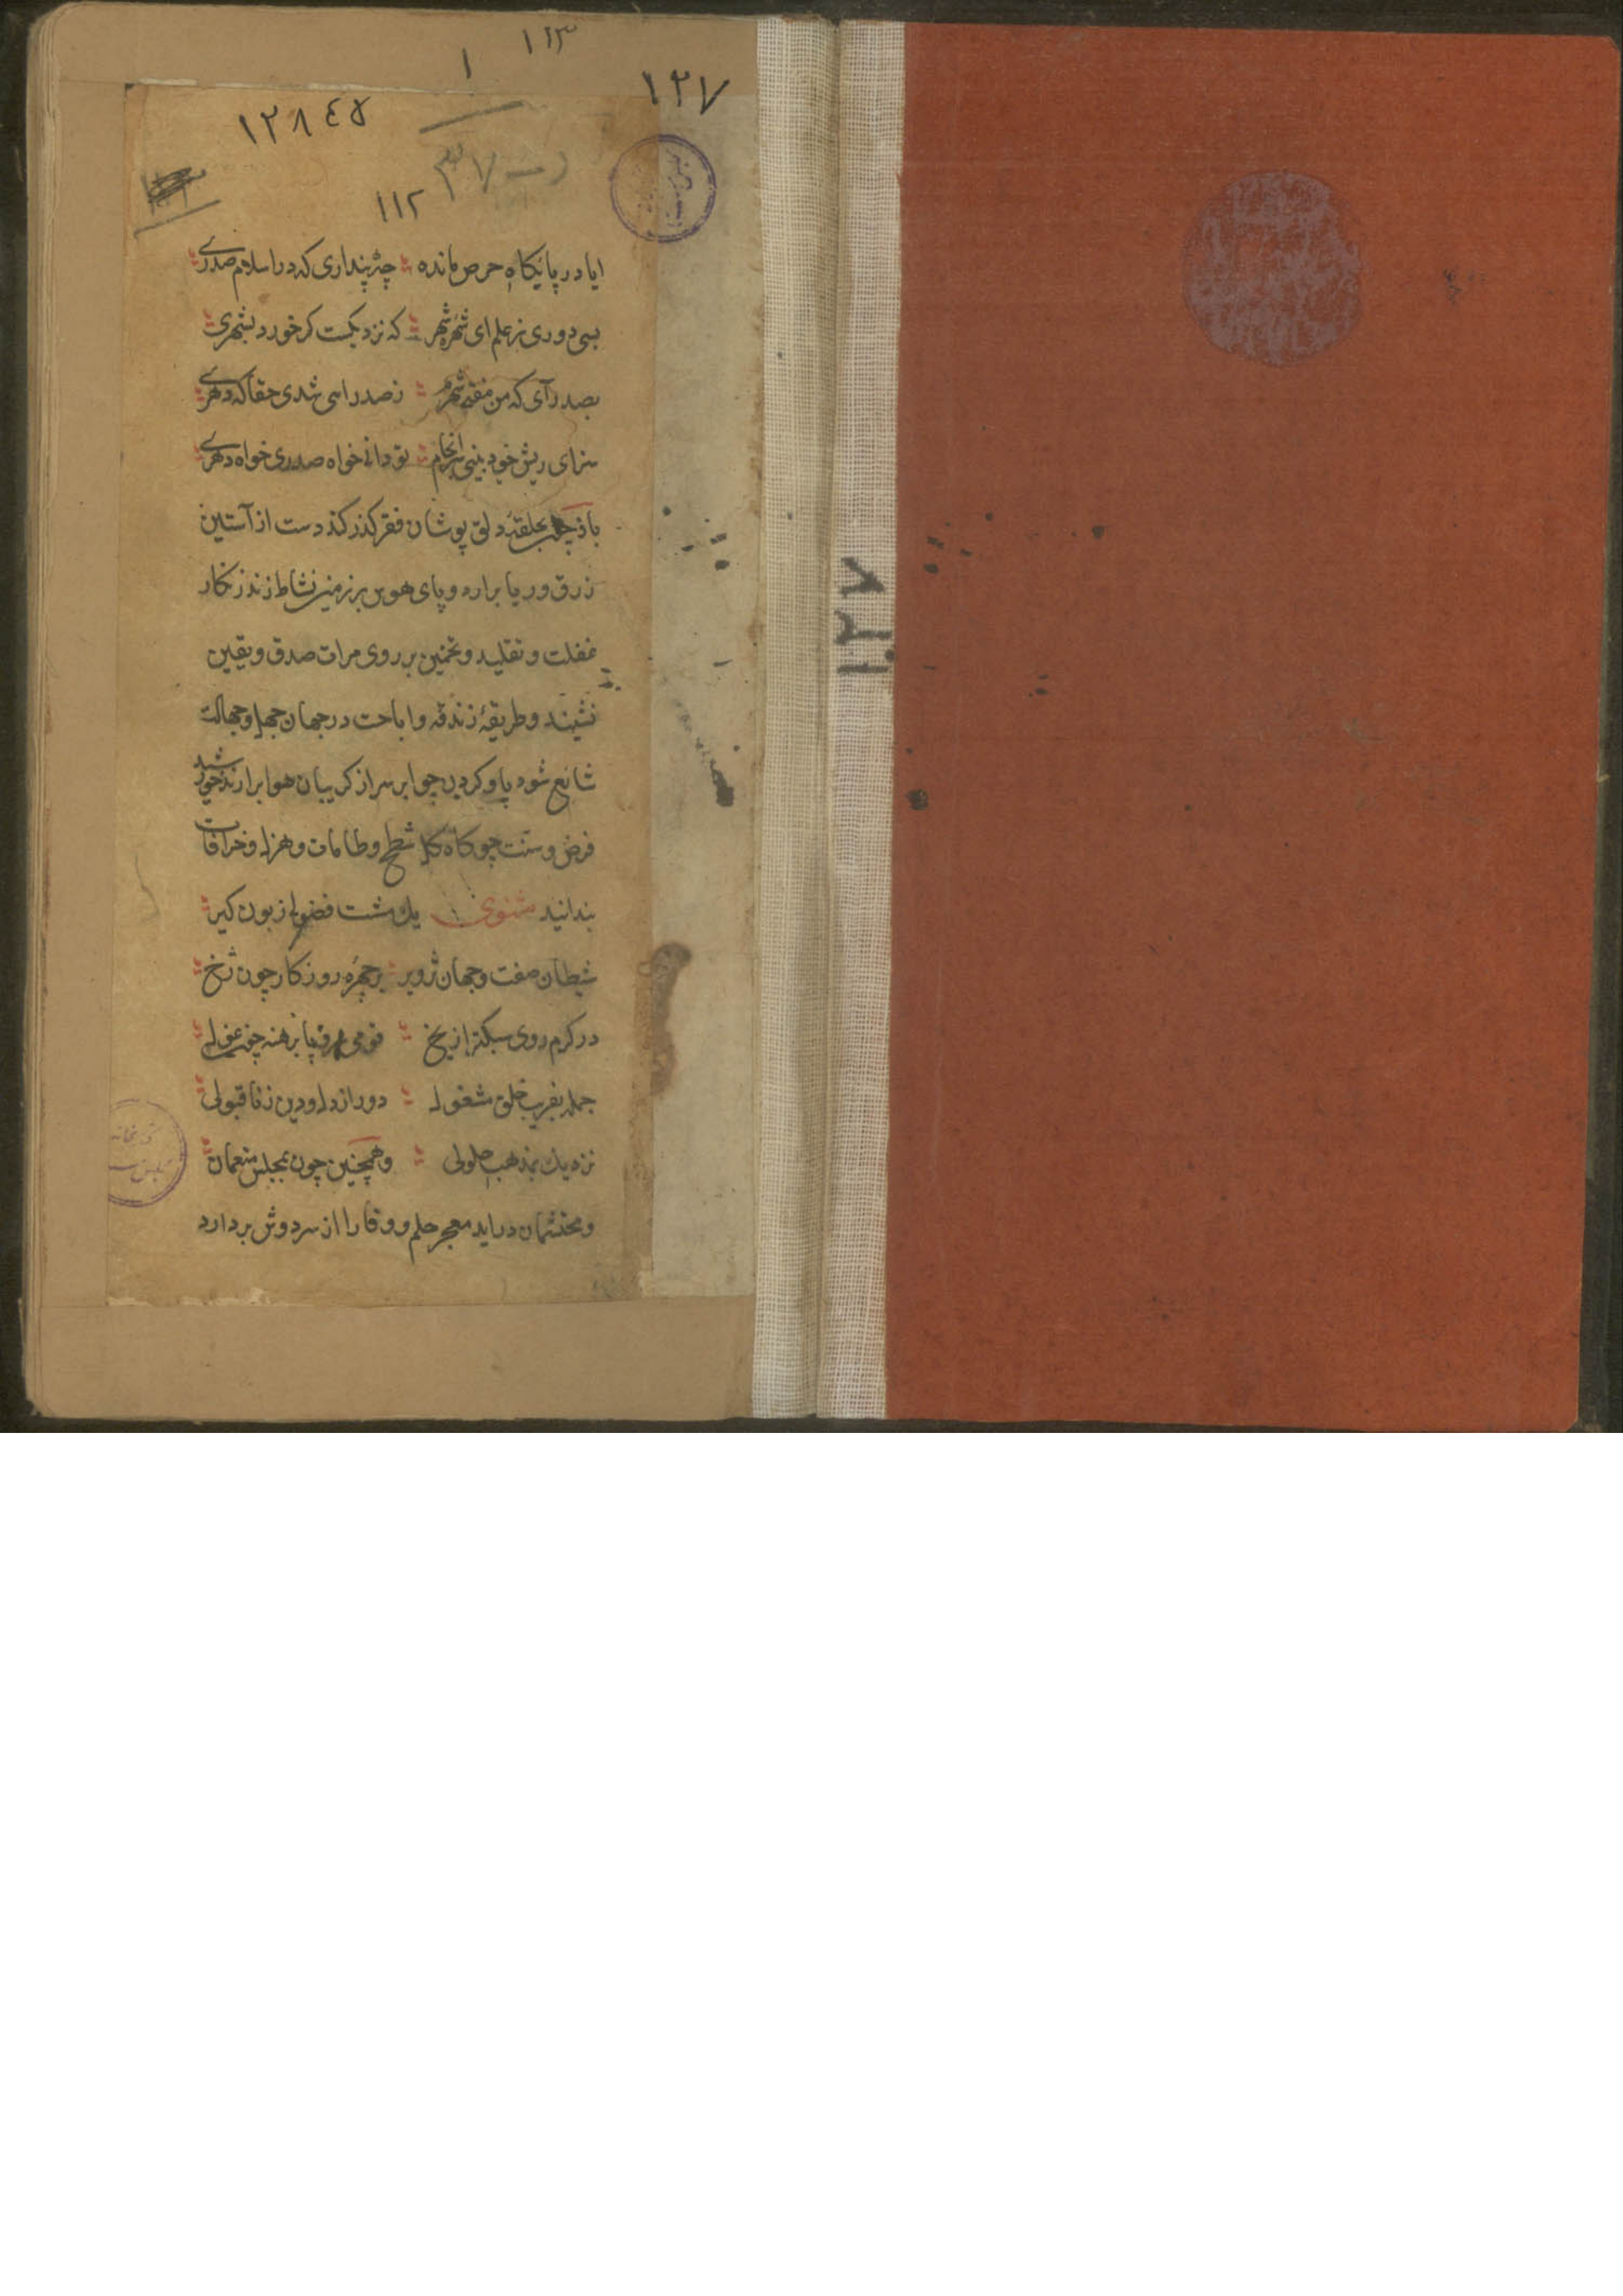 ۱۱۳
۱
۱۲۷
۱۲۸۴۵
۱۱۲
ایا در پایکاه حرص مانده چه پنداری که در اسلام صدری
بسی دوری ز علم ای شهره شهر که نزدیکست کز خود بشهری
بصدر آی که من مفتی شهرم ز صدر اسی شدی حقا که دهری
سزای ریش خود بینی سرانجام تو دانی خواه صدری خواه دهری
باز چون بحلقهٔ دلق پوشان فقر کذر کند دست از آستین
زرق و ریا برارد و پای هوس بر زمین نشاط زند زنکار
غفلت و تقلید و تخمین بر روی مرات صدق و یقین
نشیند و طریقهٔ زندقه و اباحت در جهان جهل و جهالت
شایع شود پاو کردن چو ابر سر از کریبان هوا برارند خورشید
فرض و سنت چو کاه کل شطح و طامات و هزل و خرافات
بندانید مثنوی یك مشت فضول زبون کیر
شیطان صفت و جهان تزویر بر چهره روزکار چون زخ
در کرم روی سبکتر از یخ قومی سر و پا برهنه چون غول
جمله بفریب خلق مشغول دور از دل و دین ز ناقبولی
نزدیك بمذهب حلولی و همچنین چون بمجلس منعمان
و محتشمان دراید معجر حلم و وقار از سر دوش بردارد
۱۲۷